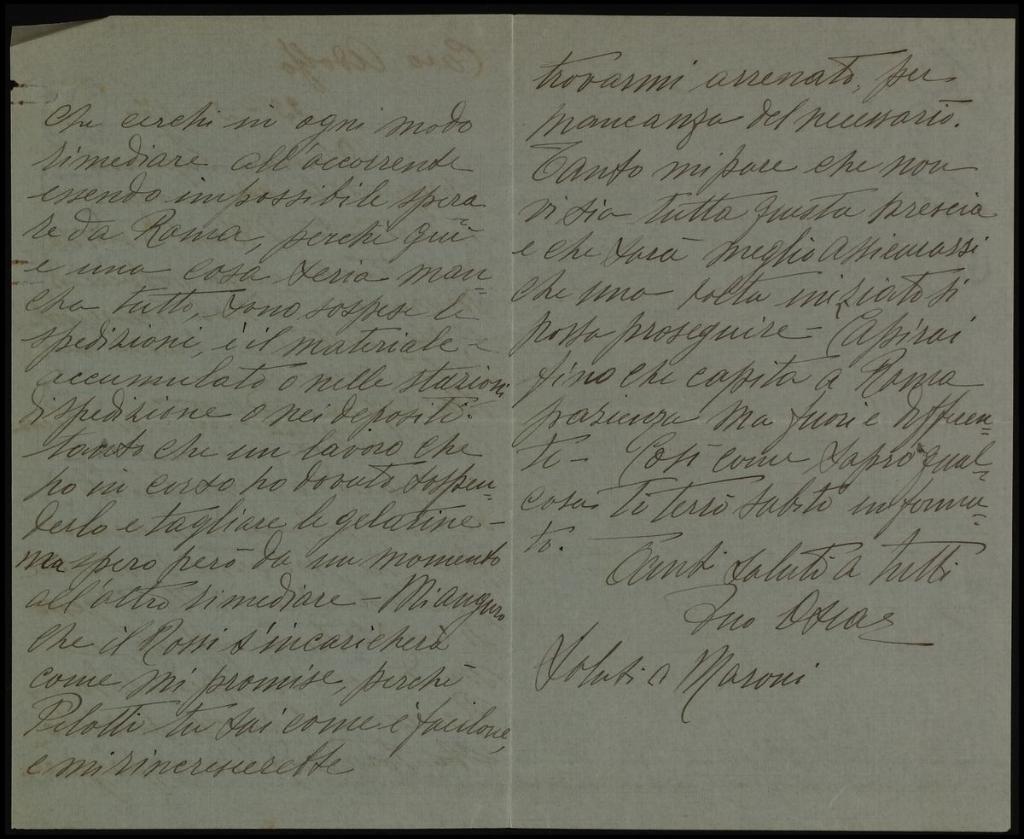 che cerchi in ogni modo
rimediare all'occorrente
essendo impossibile spera
re da Roma, perchè qui
è una cosa seria man=
cha tutto, sono sospese le
spedizioni, è il materiale
accumulato o nelle stazioni
di spedizione o nei depositi.
tanto che un lavoro che
ho in corso ho dovuto sospen=
derlo e tagliare le gelatine -
ma spero però da un momento
all'altro rimediare - Mi auguro
che il Rossi s'incaricherà
come mi promise, perchè
Pilotti tu sai come è facilone,
e mi rincrescerebbe
trovarmi arrenato, per
mancanza del necessario.
Tanto mi pare che non
vi sia tutta questa prescia
e che sarà meglio assicurassi
che una volta iniziato si
possa proseguire - Capirai
fino che capita a Roma
pazienza ma fuori è differen=
te - Così come saprò qual=
cosa ti terrò subito informa=
to.
Tanti saluti a tutti
Tuo Oscar
Saluti a Maroni
Caro Adolfo